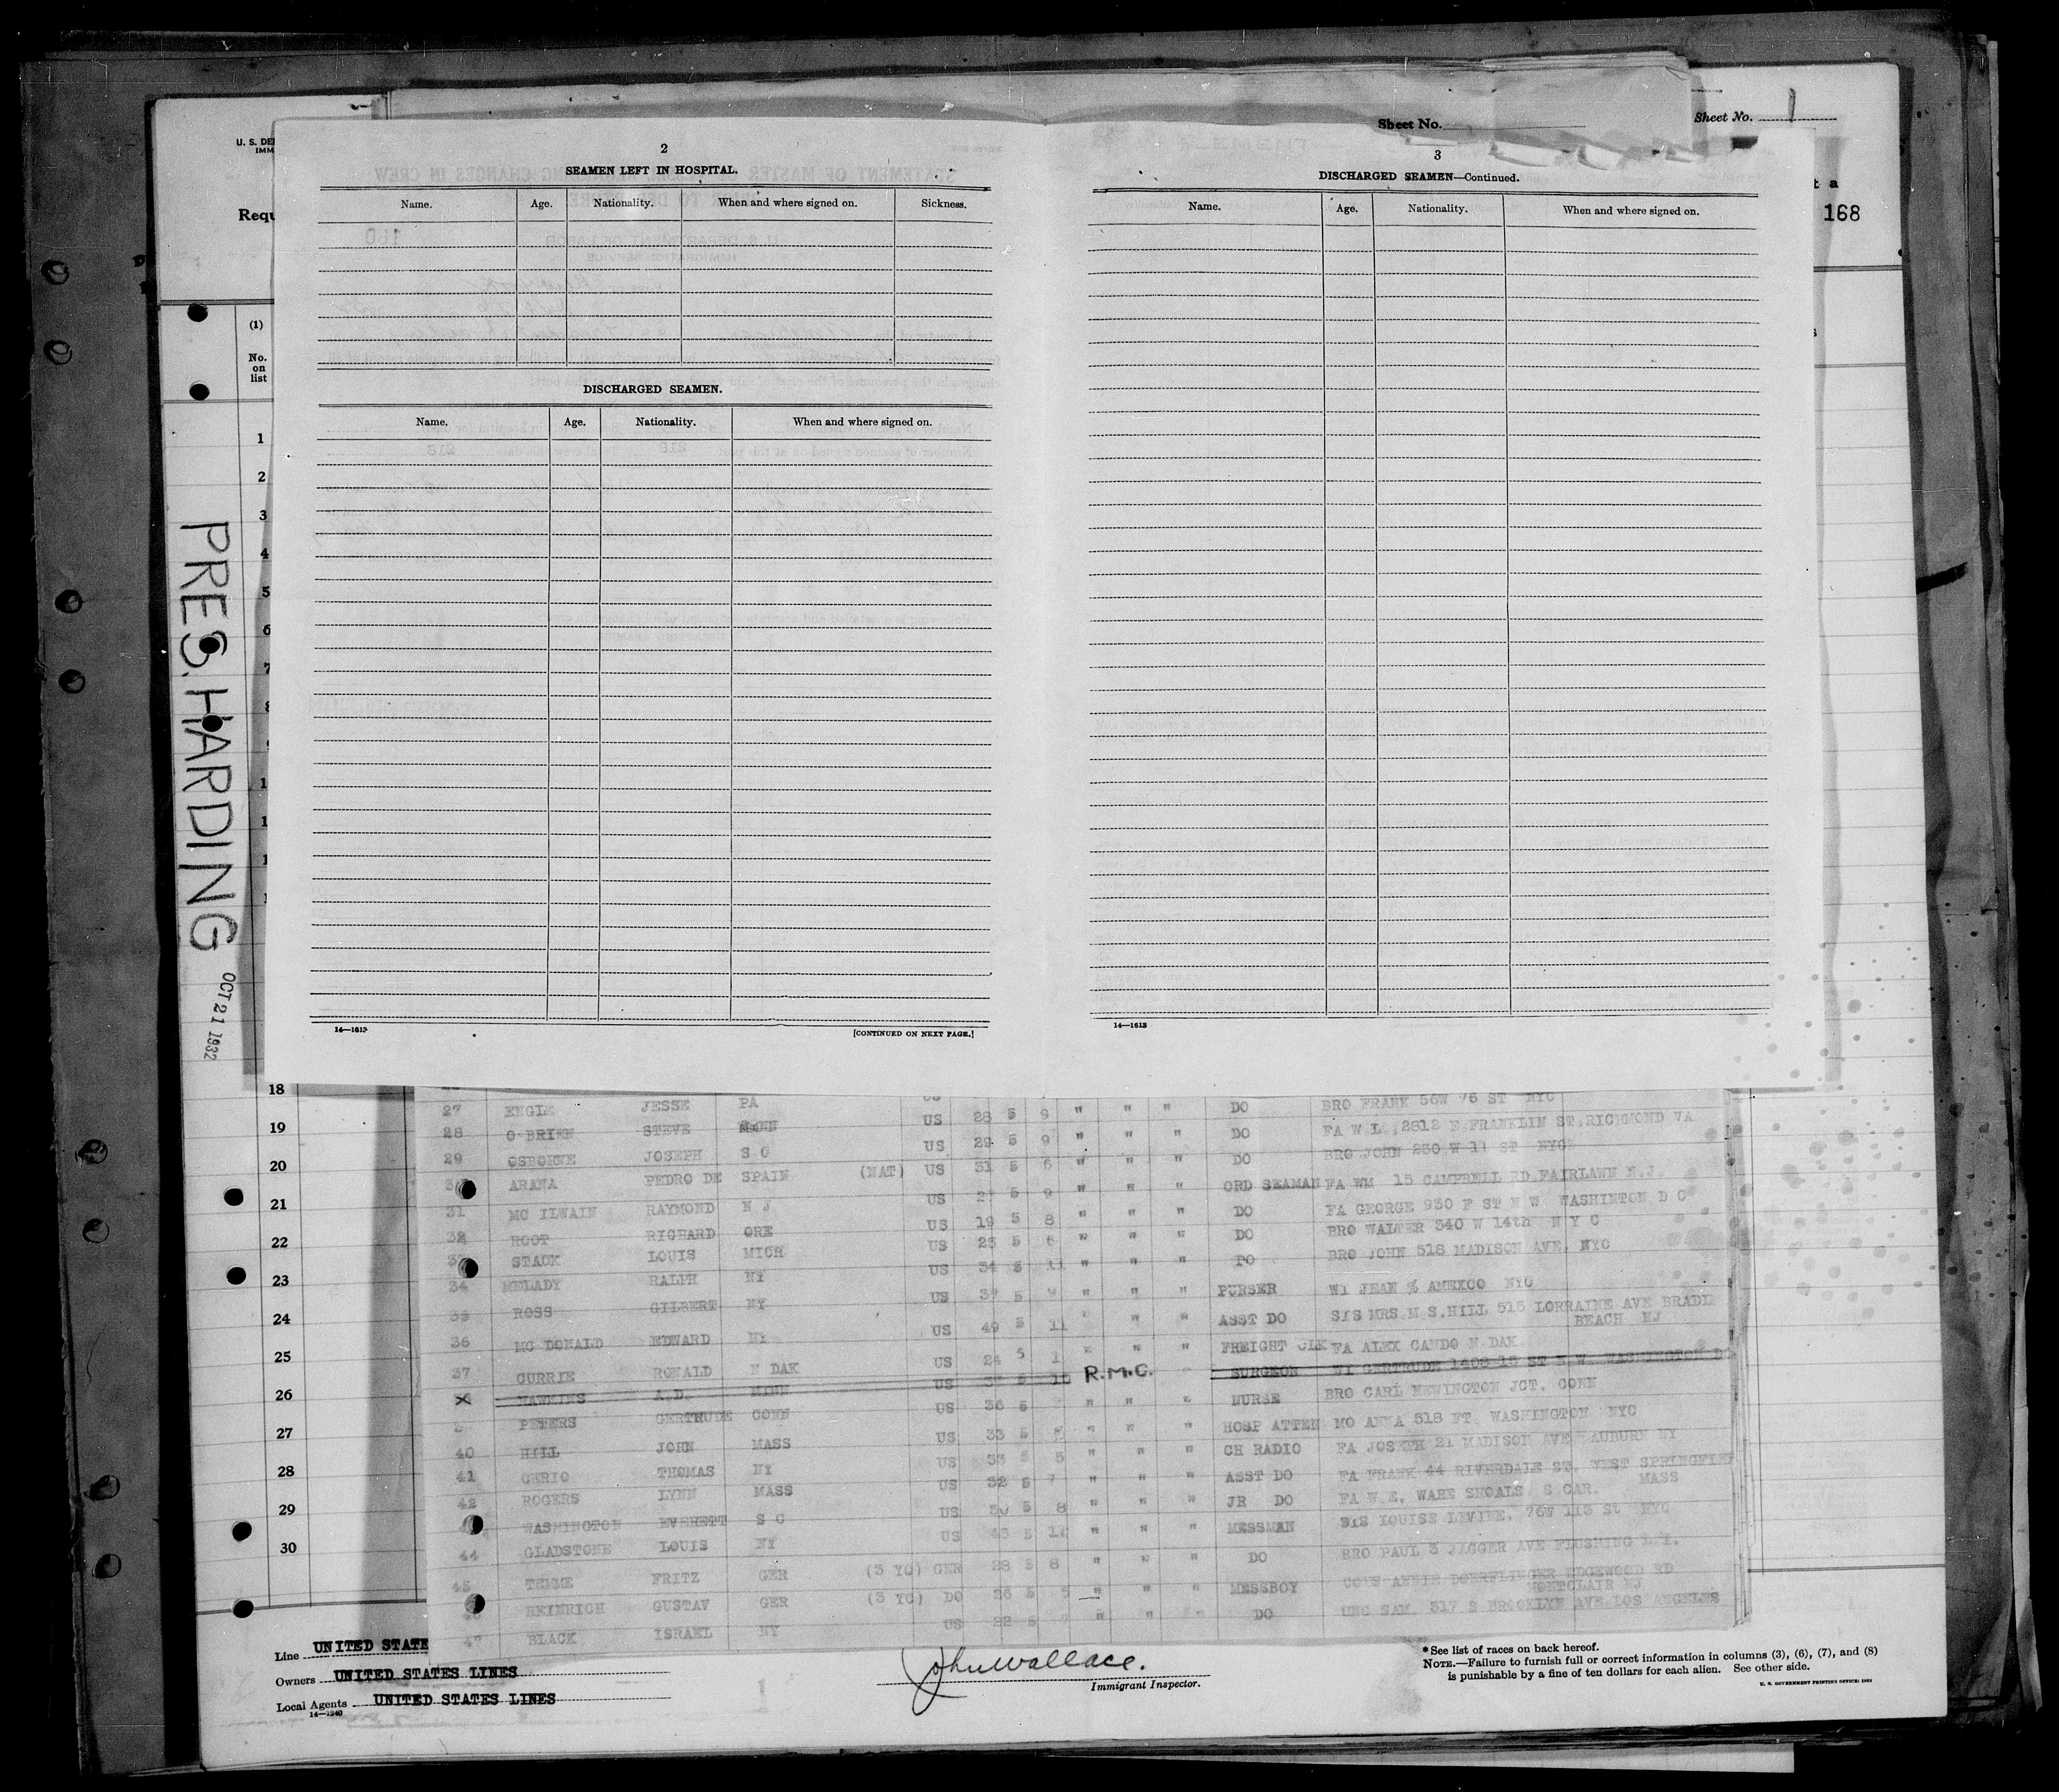 Sheet No.
Sheet No. 1
U. S. DE
IMM
Requ
t a
168
(1)
No.
on
list
1
2
3
4
5
6
7
8
PRES. HARDING
OCT 21 1932
2
SEAMEN LEFT IN HOSPITAL.
Name. Age. Nationality. When and where signed on. Sickness.
DISCHARGED SEAMEN.
Name. Age. Nationality. When and where signed on.
14—1613 [CONTINUED ON NEXT PAGE.]
3
DISCHARGED SEAMEN—Continued.
Name. Age. Nationality. When and where signed on.
14—1613
18
19
20
21
22
23
24
25
26
27
28
29
30
27 ENGLE JESSE PA US 28 5 9 " " " DO BRO FRANK 56W 76 ST NYC
28 O BRIEN STEVE US 29 5 9 " " " DO FA W L. 2812 E FRANKLIN ST. RICHMOND VA
29 OSBORNE JOSEPH S C US 31 5 6 " " " DO BRO JOHN 230 W 11 ST NYC
ARANA PEDRO DE SPAIN (NAT) US 5 9 " " " ORD SEAMAN FA WM 15 CAMPBELL RD. FAIRLAWN N.J.
31 MC ILWAIN RAYMOND N J US 19 5 8 " " " DO FA GEORGE 930 F ST N W WASHINTON D C
32 ROOT RICHARD ORE US 25 5 6 " " " DO BRO WALTER 340 W 14th N Y C
STACK LOUIS MICH US 34 5 11 " " " DO BRO JOHN 518 MADISON AVE. NYC
34 MELADY RALPH NY US 37 5 9 " " " PURSER WI JEAN % AMEXCO NYC
35 ROSS GILBERT NY US 49 5 11 " " " ASST DO SIS MRS. M S. HILL 515 LORRAINE AVE BRADL
BEACH NJ
36 MC DONALD EDWARD NY US 24 5 1 " " " FREIGHT CLK FA ALEX CANDO N DAK.
37 CURRIE RONALD N DAK US R.M.C. SURGEON WI GERTRUDE 1409 15 ST N.W. WASHINGTON DC
HAWKINS A.D. MINN US 36 5 " " " NURSE BRO CARL NEWINGTON JCT. CONN
PETERS GERTRUDE CONN US 33 5 " " " HOSP ATTEN MO ANNA 518 FT. WASHINGTON NYC
40 HILL JOHN MASS US 33 5 5 " " " CH RADIO FA JOSEPH 21 MADISON AVE AUBURN NY
41 CERIO THOMAS NY US 32 5 7 " " " ASST DO FA FRANK 44 RIVERDALE ST. WEST SPRINGFIEF
MASS
42 ROGERS LYNN MASS US 30 5 8 " " " JR DO FA W.E. WARE SHOALS S CAR.
WASHINGTON EVERETT S C US 43 5 " " " MESSMAN SIS LOUISE LEVINE. 76W 113 St NYC
44 GLADSTONE LOUIS NY (3 YC) GER 28 5 8 " " " DO BRO PAUL 3 JAGGER AVE FLUSHING L.I.
45 TEMME FRITZ GER (3 YC) DO 26 5 5 " " " MESSBOY COUS ANNIE DOERFLINGER EDGEWOOD RD
MONTCLAIR NJ
HEINRICH GUSTAV GER US 22 5 " " " DO UNC SAM. 317 S BROOKLYN AVE LOS ANGELES
47 BLACK ISRAEL NY
Line UNITED STATE
Owners UNITED STATES LINES
Local Agents UNITED STATES LINES
14—1240
John Wallace.
Immigrant Inspector.
* See list of races on back hereof.
NOTE.—Failure to furnish full or correct information in columns (3), (6), (7), and (8)
is punishable by a fine of ten dollars for each alien. See other side.